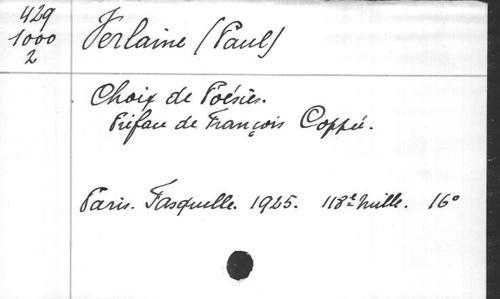 429
1000
2
Verlaine (Paul)
Choix de Poésies.
Préface de François Coppée.
Paris. Fasquelle. 1925. 118e mille. 16°